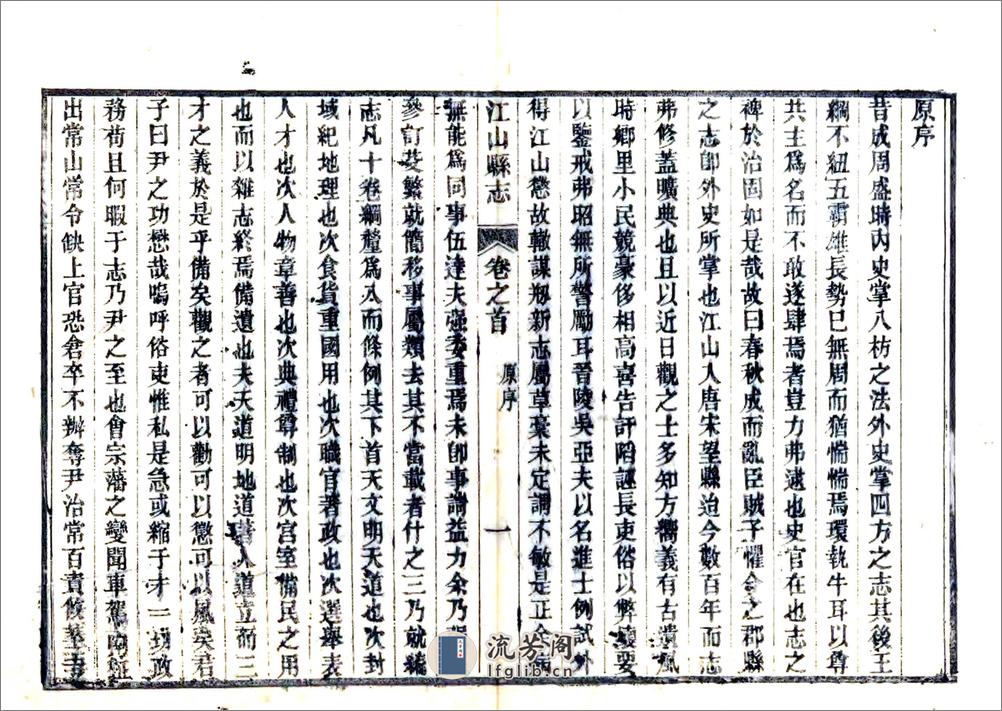 原序
昔成周盛時內史掌八枋之法外史掌四方之志其後王
綱不紐五霸雄長勢已無周而猶惴惴焉環執牛耳以尊
共主為名而不敢遂肆焉者豈力弗逮也史官在也志之
裨於治固如是哉故曰春秋成而亂臣賊子懼今之郡縣
之志即外史所掌也江山人唐宋望縣迨今數百年而志
弗修蓋曠典也且以近日觀之士多知方嚮義有古遺風
時鄉里小民競豪侈相高喜告訐陷誣長吏俗以弊壞要
以鑒戒弗昭無所警勵耳晉陵吳亞夫以名進士例試外
得江山懲故轍謀刱新志屬草藁未定調不敏是正余病
江山縣志
卷之首
原序
一
無能為同事伍達夫强委重焉未即事謝益力余乃
參訂芟繁就簡移事屬類去其不當載者什之三乃就編
志凡十卷綱釐為八而條例其下首天文明天道也次封
域紀地理也次食貨重國用也次職官著政也次選舉表
人才也次人物章善也次典禮尊制也次宮室備民之用
也而以雜志終焉備遺也夫天道明地道著人道立而三
才之義於是乎備矣觀之者可以勸可以懲可以風矣君
子曰尹之功懋哉嗚呼俗吏惟私是急或縮于才一切政
務苟且何暇于志乃尹之至也會宗藩之變聞車駕南
出常山常令缺上官恐倉卒不辦奪尹治常百責
流芳阁
lfglib.com